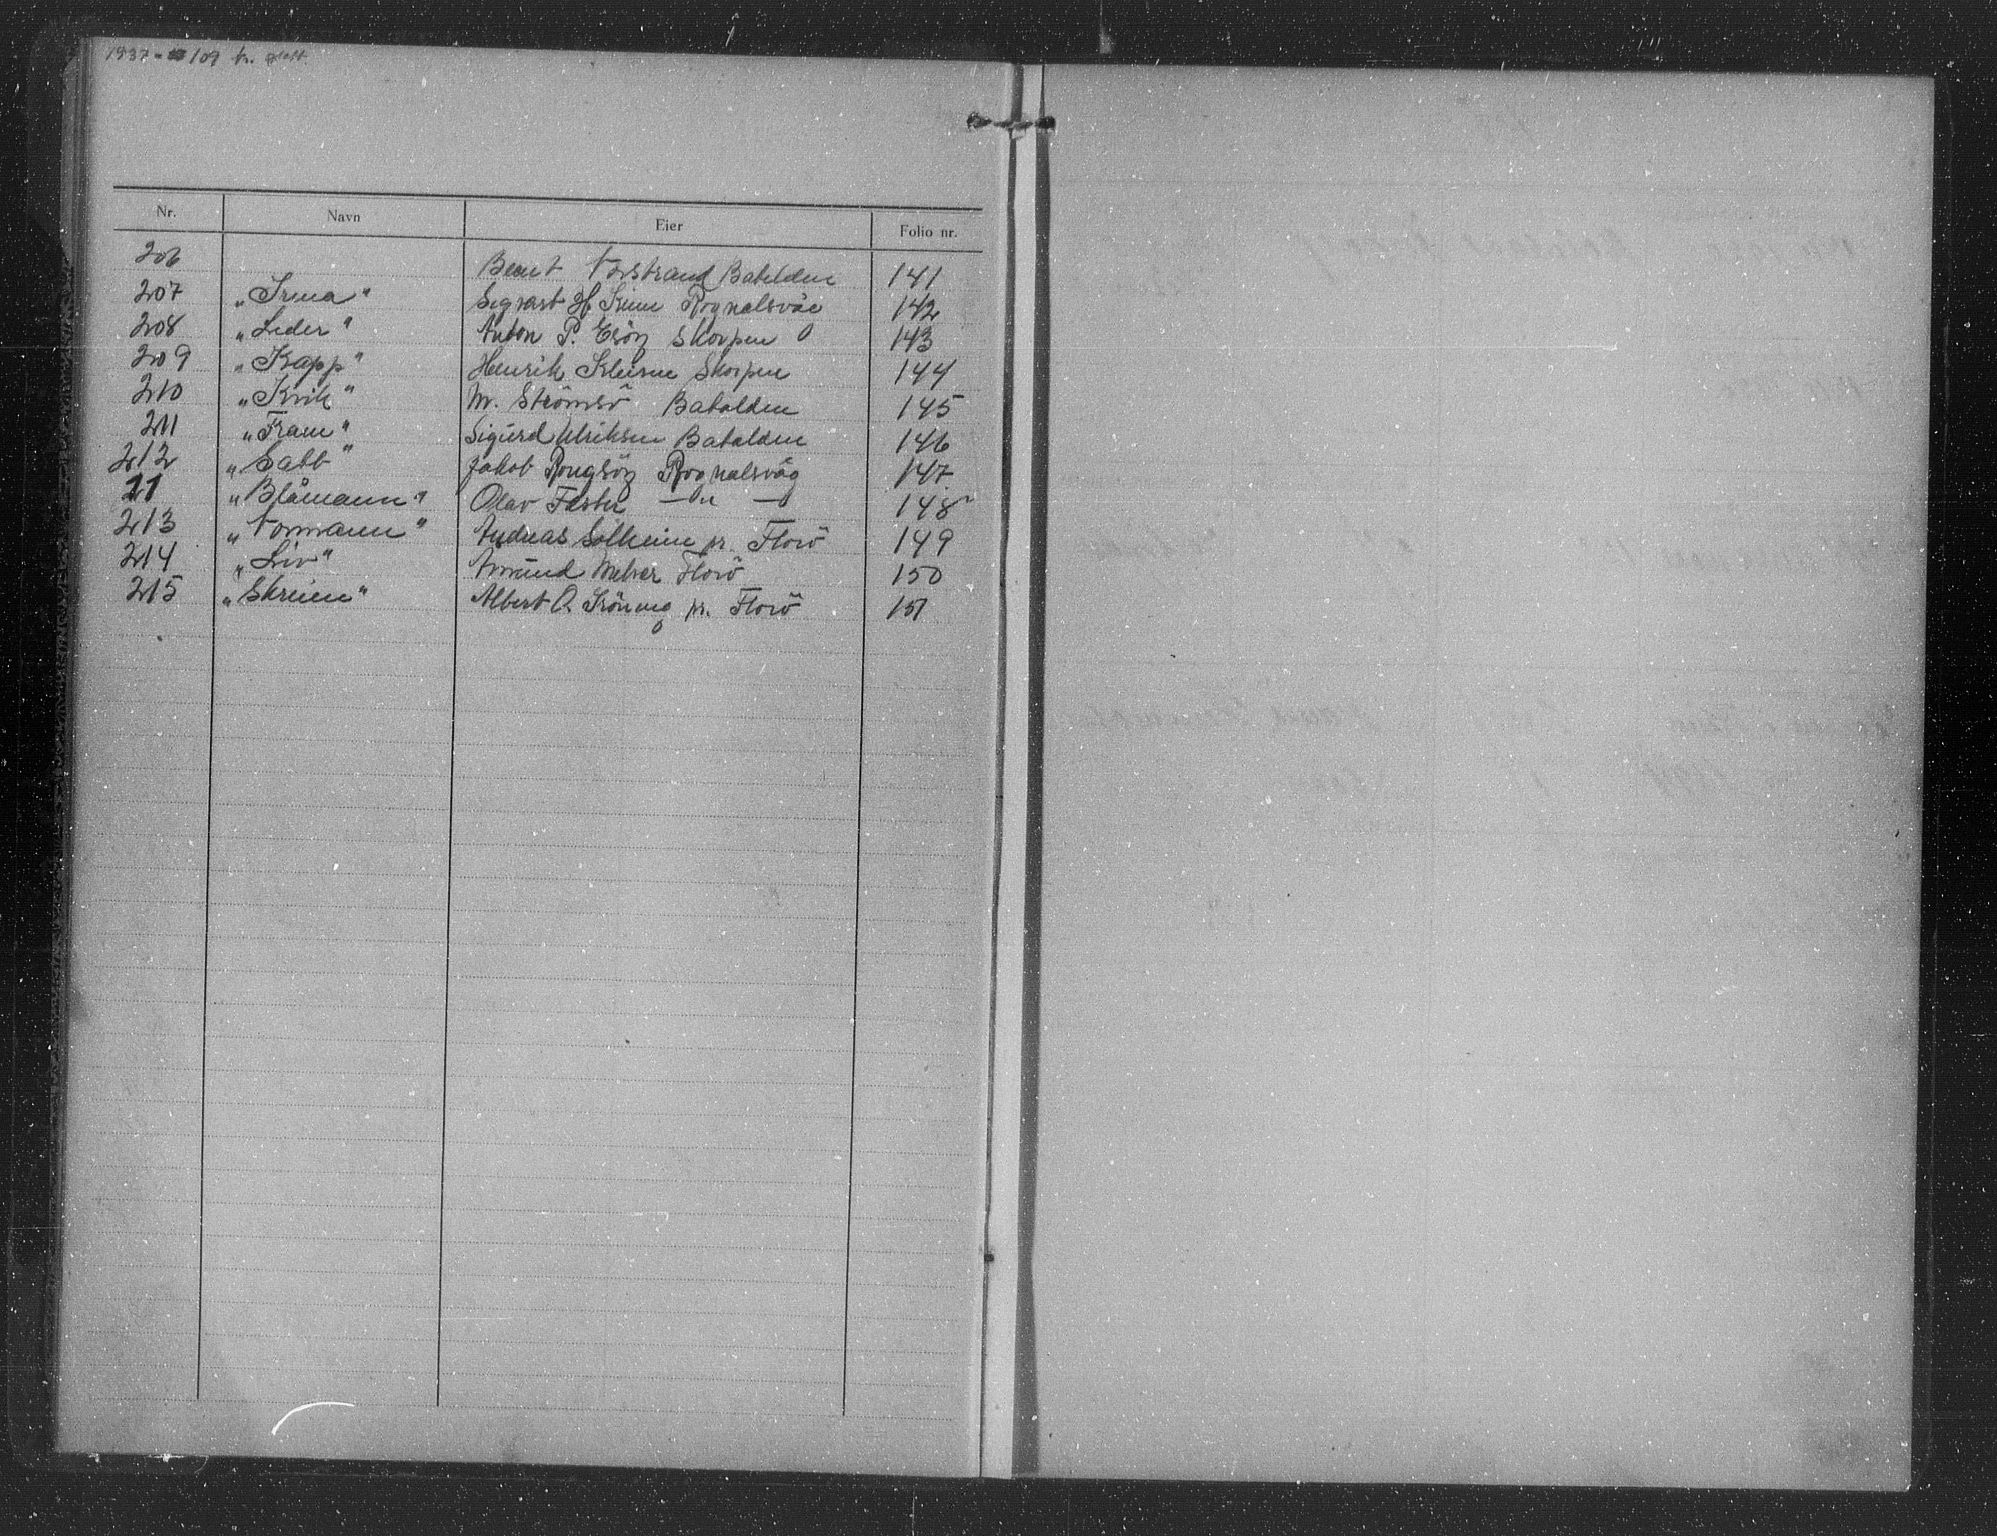 1937 - 109 kr.
Nr. Navn Eier Folio nr.
206 Bernt Norstrand Batalden 141
207 „Irma" Sigvart H Rognalsvåg 142
208 „Leder" Anton P. Skorpen 143
209 „Kapp" Henrik Skorpen 144
210 „Kvik" M. Strömsö Batalden 145
211 „Fram" Sigurd Ulriksen Batalden 146
212 „Sabb" Jakob Rognalsvåg 147
11 „Blåmann" Olav Fester — " — 148
213 „Normann" Andreas Solheim pr. Florö 149
214 „Liv" Amund Florö 150
215 Albert O. pr. Florö 151